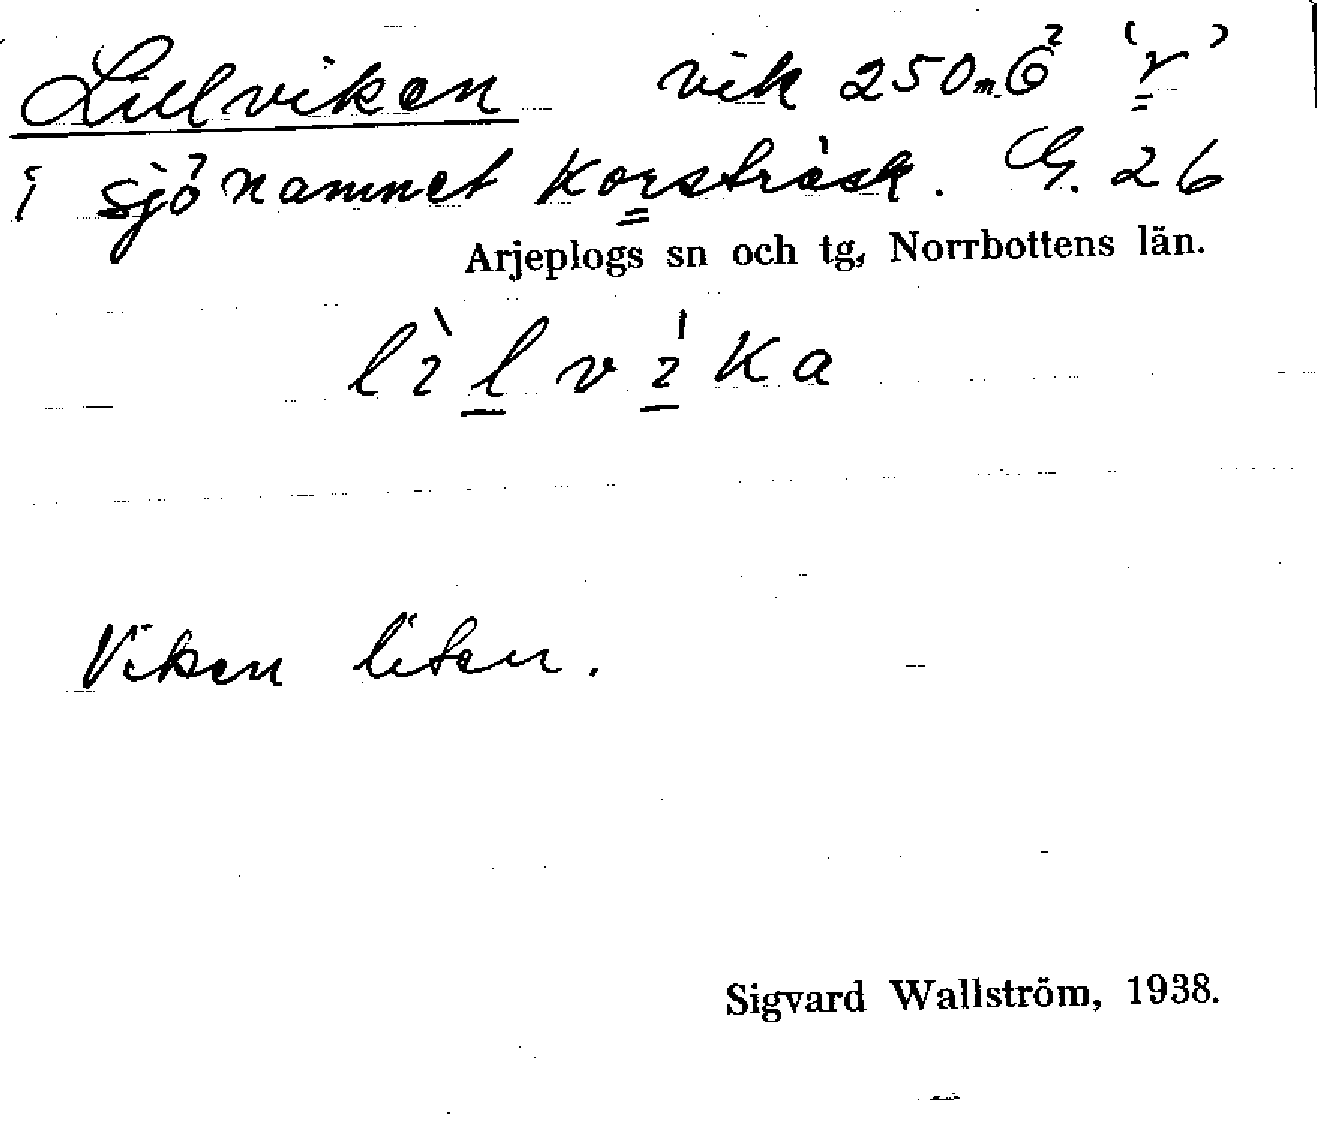 Lillviken vik 250 m Ö 'r'
i sjönamnet Korsträsk. G. 26
Arjeplogs sn och tg, Norrbottens län.
lìlvíka
Viken liten.
Sigvard Wallström, 1938.